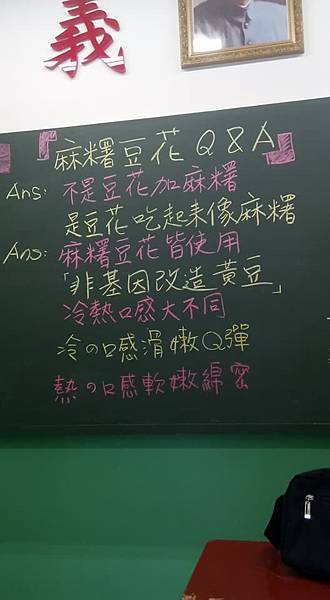 義
『麻糬豆花Q&A』
Ans: 不是豆花加麻糬
是豆花吃起來像麻糬
Ans: 麻糬豆花皆使用
「非基因改造黃豆」
冷熱口感大不同
冷の口感滑嫩Q彈
熱の口感軟嫩綿密